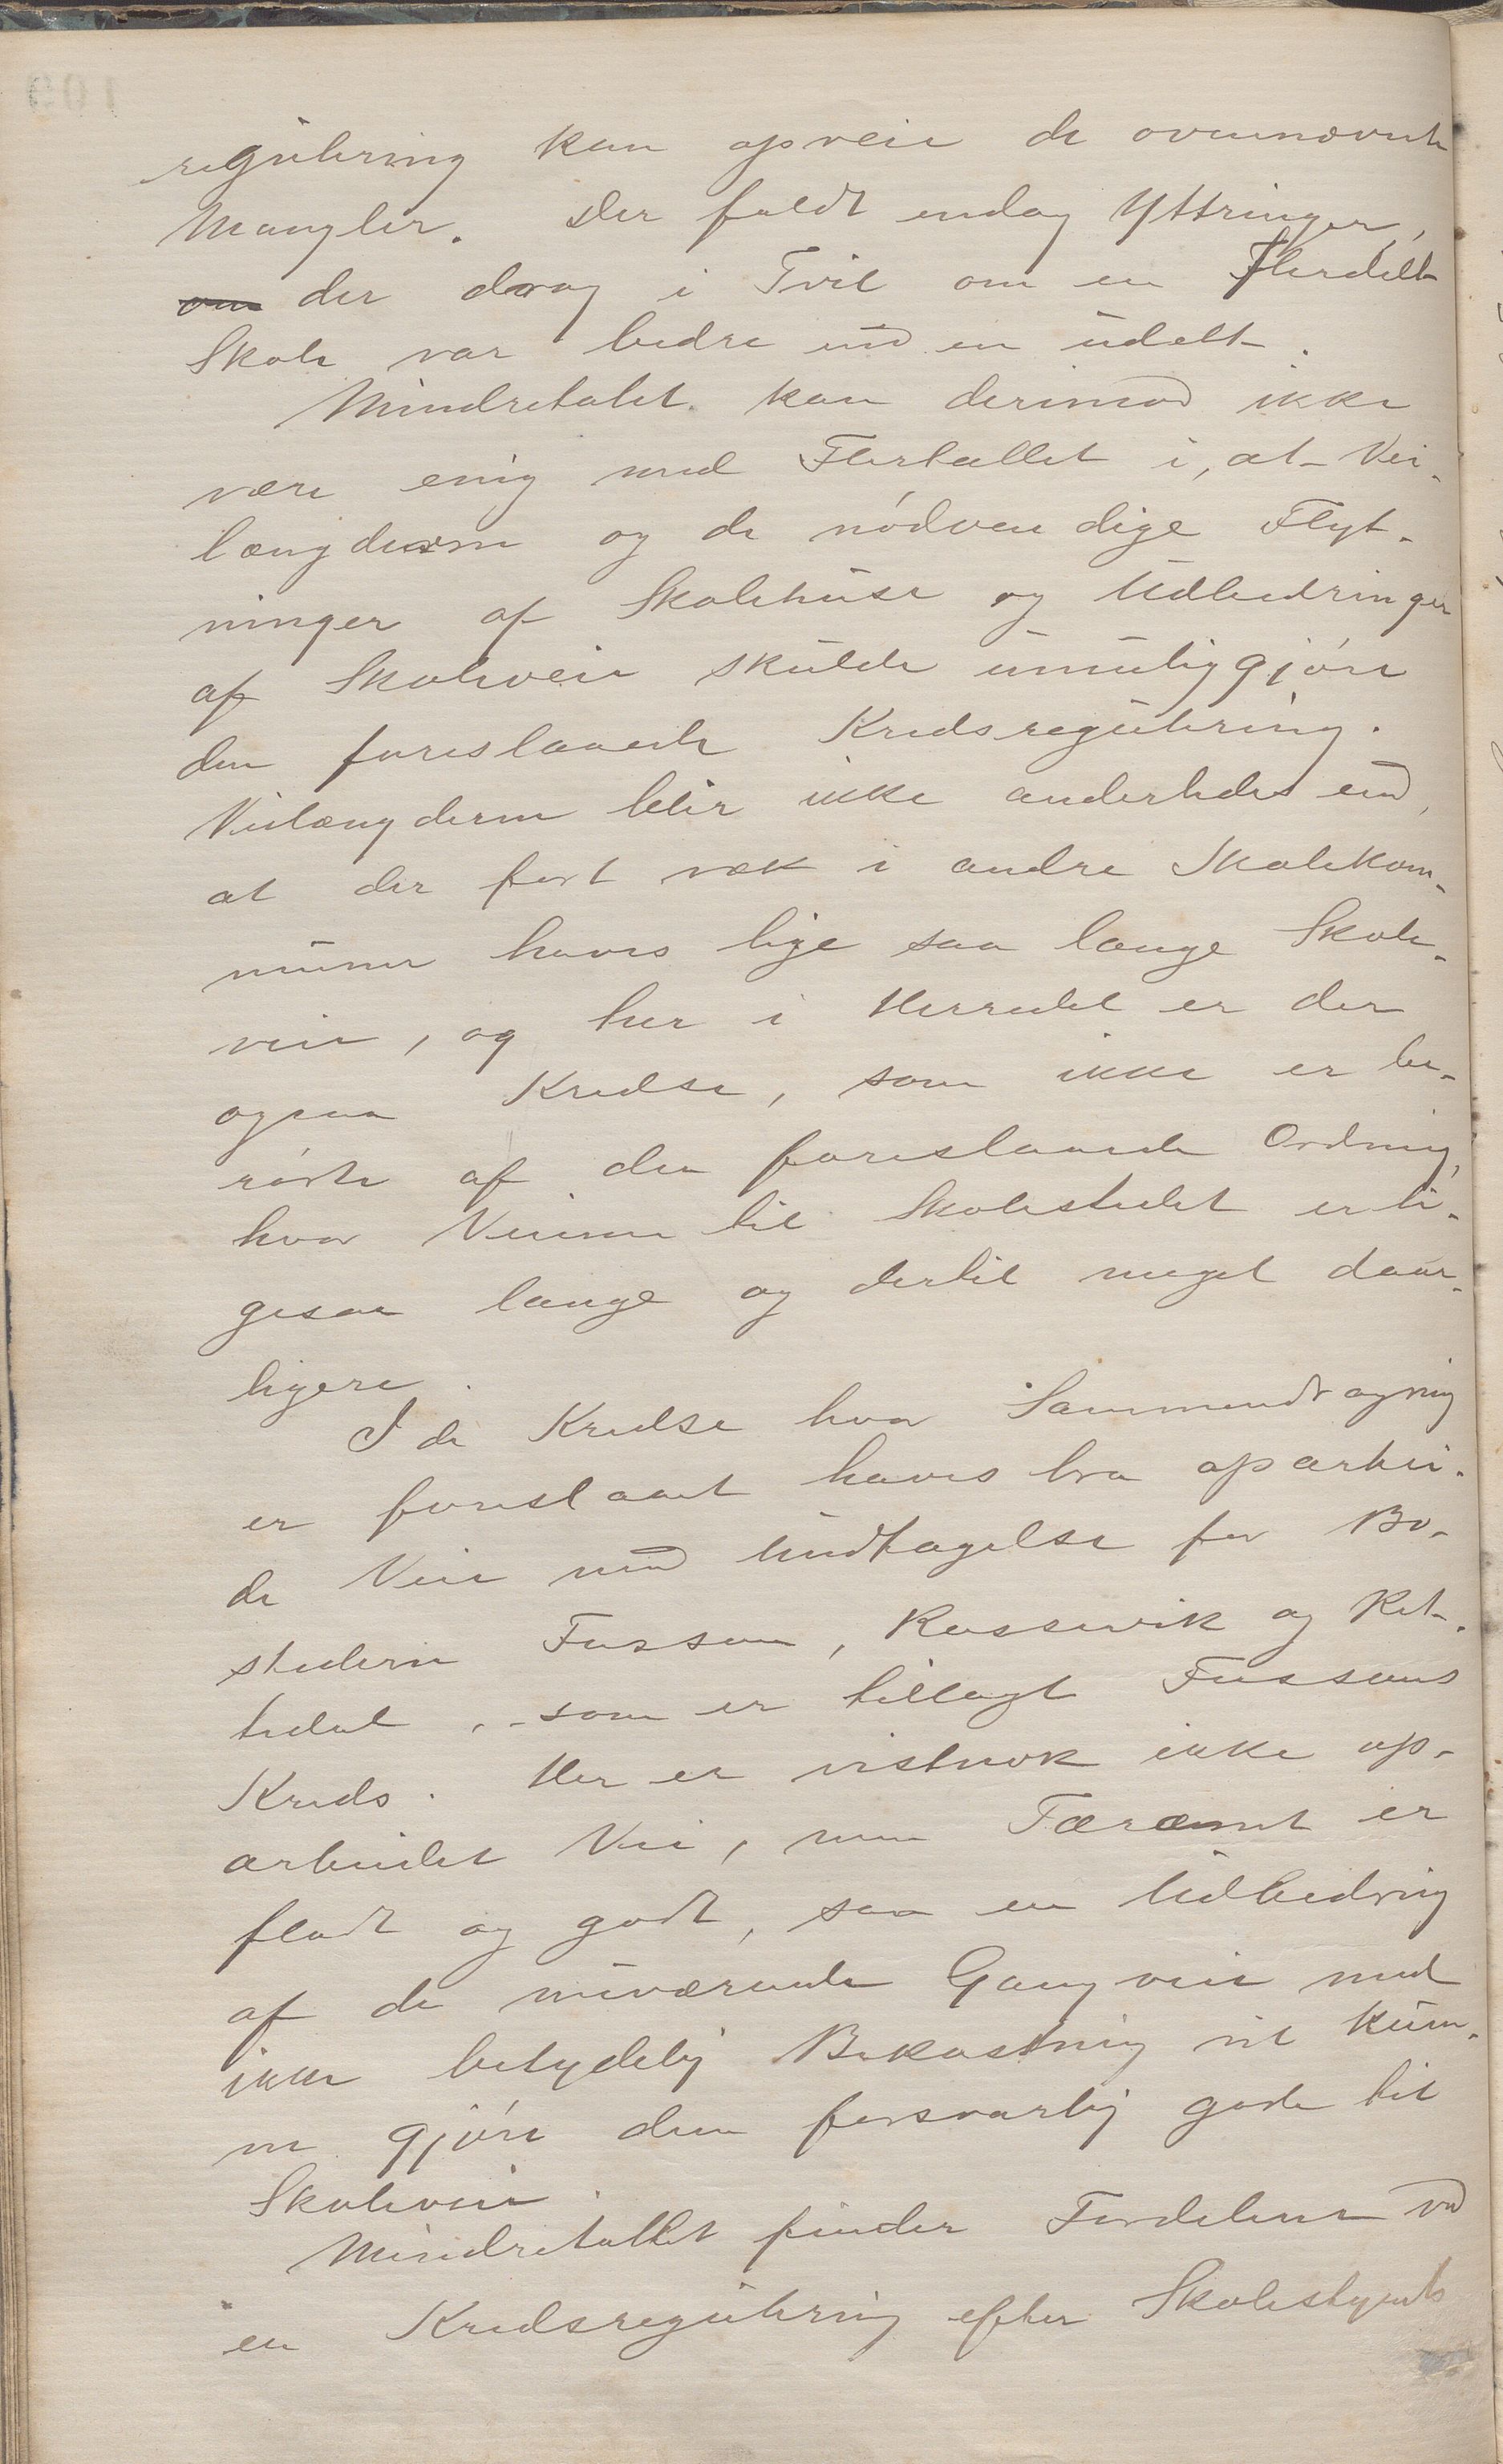 regulering kan opveie de ovennævnte
Mangler. Der faldt endog Yttringer,
om der drog i Tvil om en Flerdelt
Skole var bedre end en udelt.
Mindretalet kan derimod ikke
være enig med Flertallet i, at Vei-
længderne og de nödvendige Flyt-
ninger af Skolehuse og Udbedringer
af Skoleveie skulde umuliggjöre
den foreslaaede Kredsregulering.
Veilængderne blir ikke anderledes end,
at der fort væk i andre Skolekom-
muner haves lige saa lange Skole-
veie, og her i Herredet er der
ogsaa Kredse, som ikke er be-
rörte af den foreslaaede Ordning,
hvor Veiene til Skolestedet er li-
gesaa lange og dertil meget daar-
ligere.
I de Kredse hvor Sammendragning
er foreslaaet haves bra oparbei-
de Veie med Undtagelse for Bo-
stederne Fussan, Rossevik og Ret-
tedal, som er tillagt Fussans
Kreds. Her er vistnok ikke op-
arbeidet Vei, men Færænet er
fladt og godt, saa en Udbedring
af de nuværende Gangveie med
ikke betydelig Bekostning vil kun-
ne gjöre dem forsvarlig gode til
Skoleveie.
Mindretallet finder Fordelene ved
en Kredsregulering efter Skolestyrets